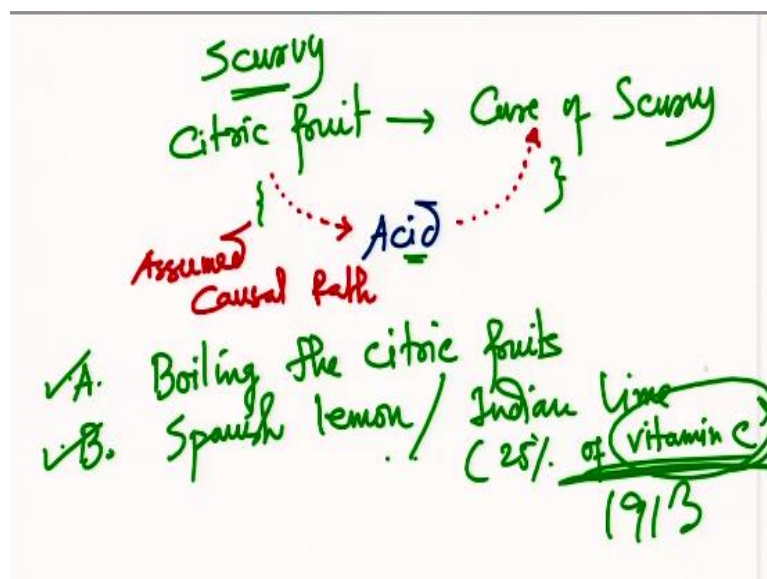 Scurvy
Citric fruit → Cure of Scurvy
{ Acid }
Assumed
Causal Path
✓A. Boiling the citric fruits
✓B. Spanish lemon / Indian Lime
(25% of vitamin C)
1913